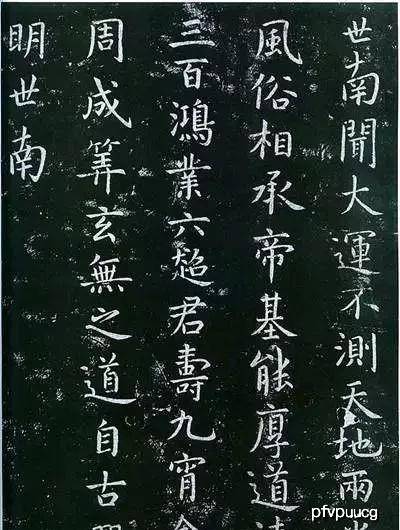 世南聞大運不測天地兩
風俗相承帝基能厚道
三百鴻業六超君壽九宵
周成筭玄無之道自古
明世南
pfvpuucg